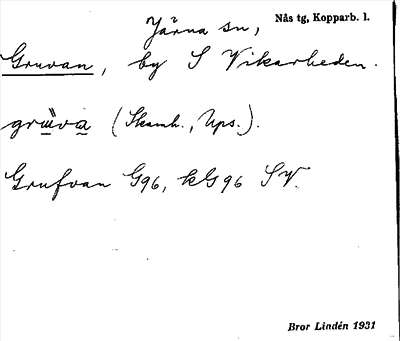 Järna sn, Nås tg, Kopparb. l.
Gruvan, by S Vikarheden.
grùva (Skamh., Ups.).
Grufvan G96, kG96 SV.
Bror Lindén 1931